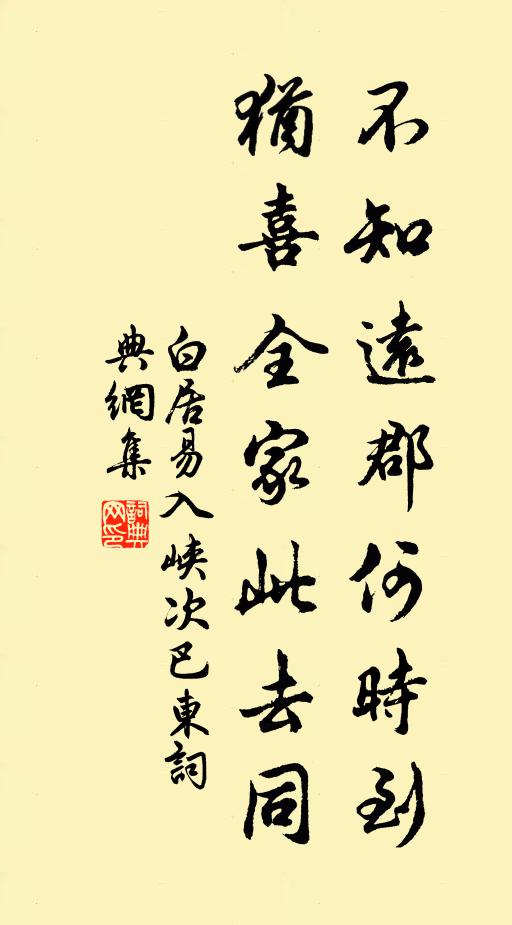 不知遠郡何時到
猶喜全家此去同
白居易入峽次巴東詞
典網集
詞典
网印